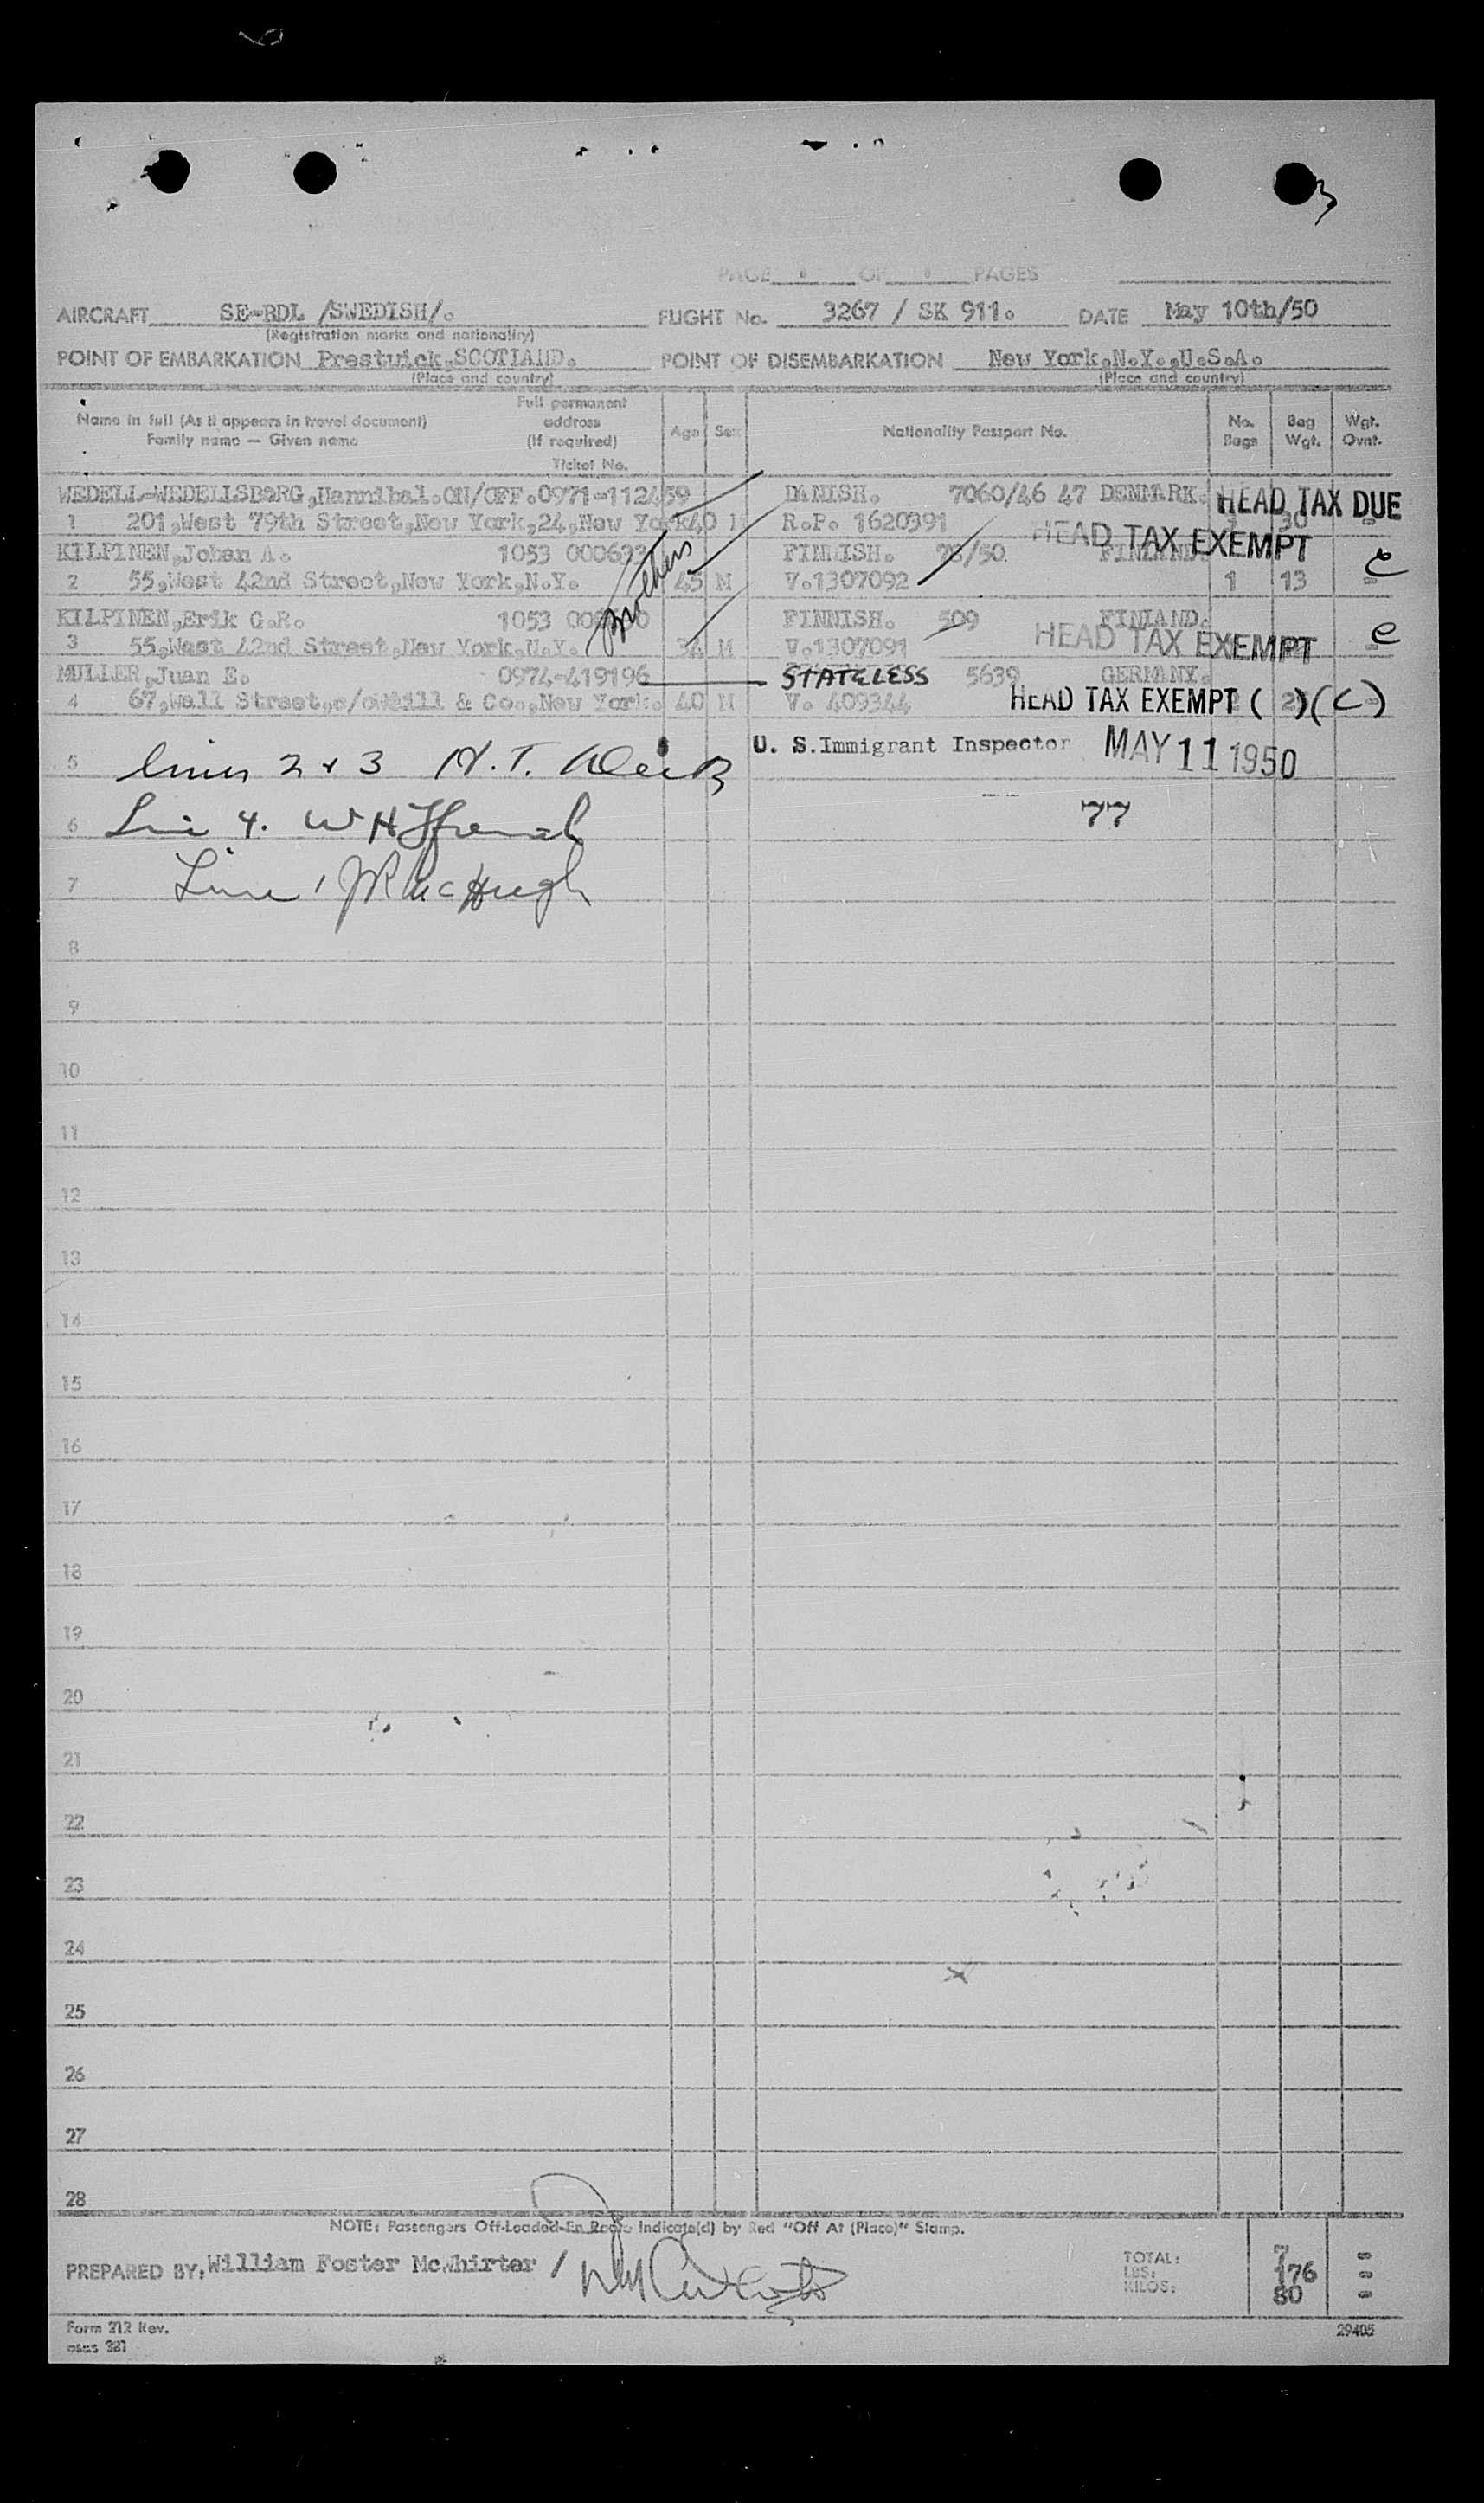 3
PAGE 1 OF 1 PAGES
AIRCRAFT SE-BDL /SWEDISH/. FLIGHT No. 3267 / SK 911. DATE May 10th/50
(Registration marks and nationality)
POINT OF EMBARKATION Prestwick,SCOTLAND. POINT OF DISEMBARKATION New York,N.Y.,U.S.A.
(Place and country) (Place and country)
Name in full (As it appears in travel document) Family name — Given name Full permanent address (If required) Ticket No. Age Sex Nationality Passport No. No. Bags Bag Wgt. Wgt. Ovnt.
WEDELL-WEDELLSBORG,Hannibal.ON/OFF.0971-112459 DANISH. 7060/46 47 DENMARK. HEAD TAX DUE
1 201,West 79th Street,New York,24,New York 40 M R.P. 1620391 30 -
KILPINEN,Johan A. 1053 brothers FINNISH. 28/50 FINLAND. HEAD TAX EXEMPT c
2 55,West 42nd Street,New York,N.Y. 45 M V.1307092 1 13 -
KILPINEN,Erik G.R. 1053 FINNISH. 509 FINLAND. HEAD TAX EXEMPT c
3 55,West 42nd Street,New York,N.Y. 34 M V.1307091
MULLER,Juan E. 0974-419196 STATELESS 5639 GERMANY.
4 67,Wall Street,c/o Hill & Co.,New York. 40 M V. 409344 HEAD TAX EXEMPT ( )(C)
U. S. Immigrant Inspector MAY 11 1950
5 lines 2 & 3
77
6 Line 4. W H French
7 Line 1 J R McHugh
8
9
10
11
12
13
14
15
16
17
18
19
20
21
22
23
24
25
26
27
28
NOTE: Passengers Off-Loaded-En Route Indicate(d) by Red "Off At (Place)" Stamp.
PREPARED BY: William Foster McWhirter /
TOTAL: 7 -
LBS: 176 -
KILOS: 80 -
Form 212 Rev. 29405
osas 321